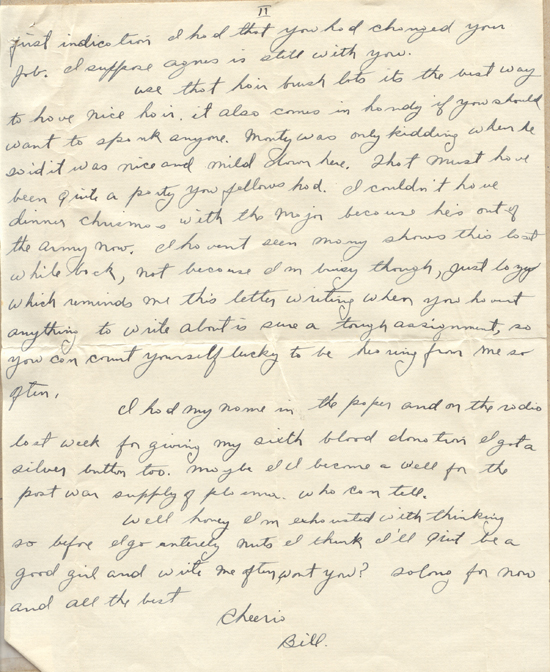 II
first indication I had that you had changed your
job. I suppose agnes is still with you.
use that hair brush lots its the best way
to have nice hair. it also comes in handy if you should
want to spank anyone. Monty was only kidding when he
said it was nice and mild down here. That must have
been quite a party you fellows had. I couldn't have
dinner Chrismas with the Major because he's out of
the army now. I havent seen many shows this last
while back, not because I'm busy though, just lazy
which reminds me this letter writing when you havent
anything to write about is sure a tough assignment, so
you can count yourself lucky to be hearing from me so
often.
I had my name in the paper and on the radio
last week for giving my sixth blood donation I got a
silver button too. maybe I'll become a well for the
post war supply of plasma. who can tell.
Well honey I'm exhausted with thinking
so before I go entirely nuts I think I'll quit be a
good girl and write me often wont you? so long for now
and all the best
Cheerio
Bill.